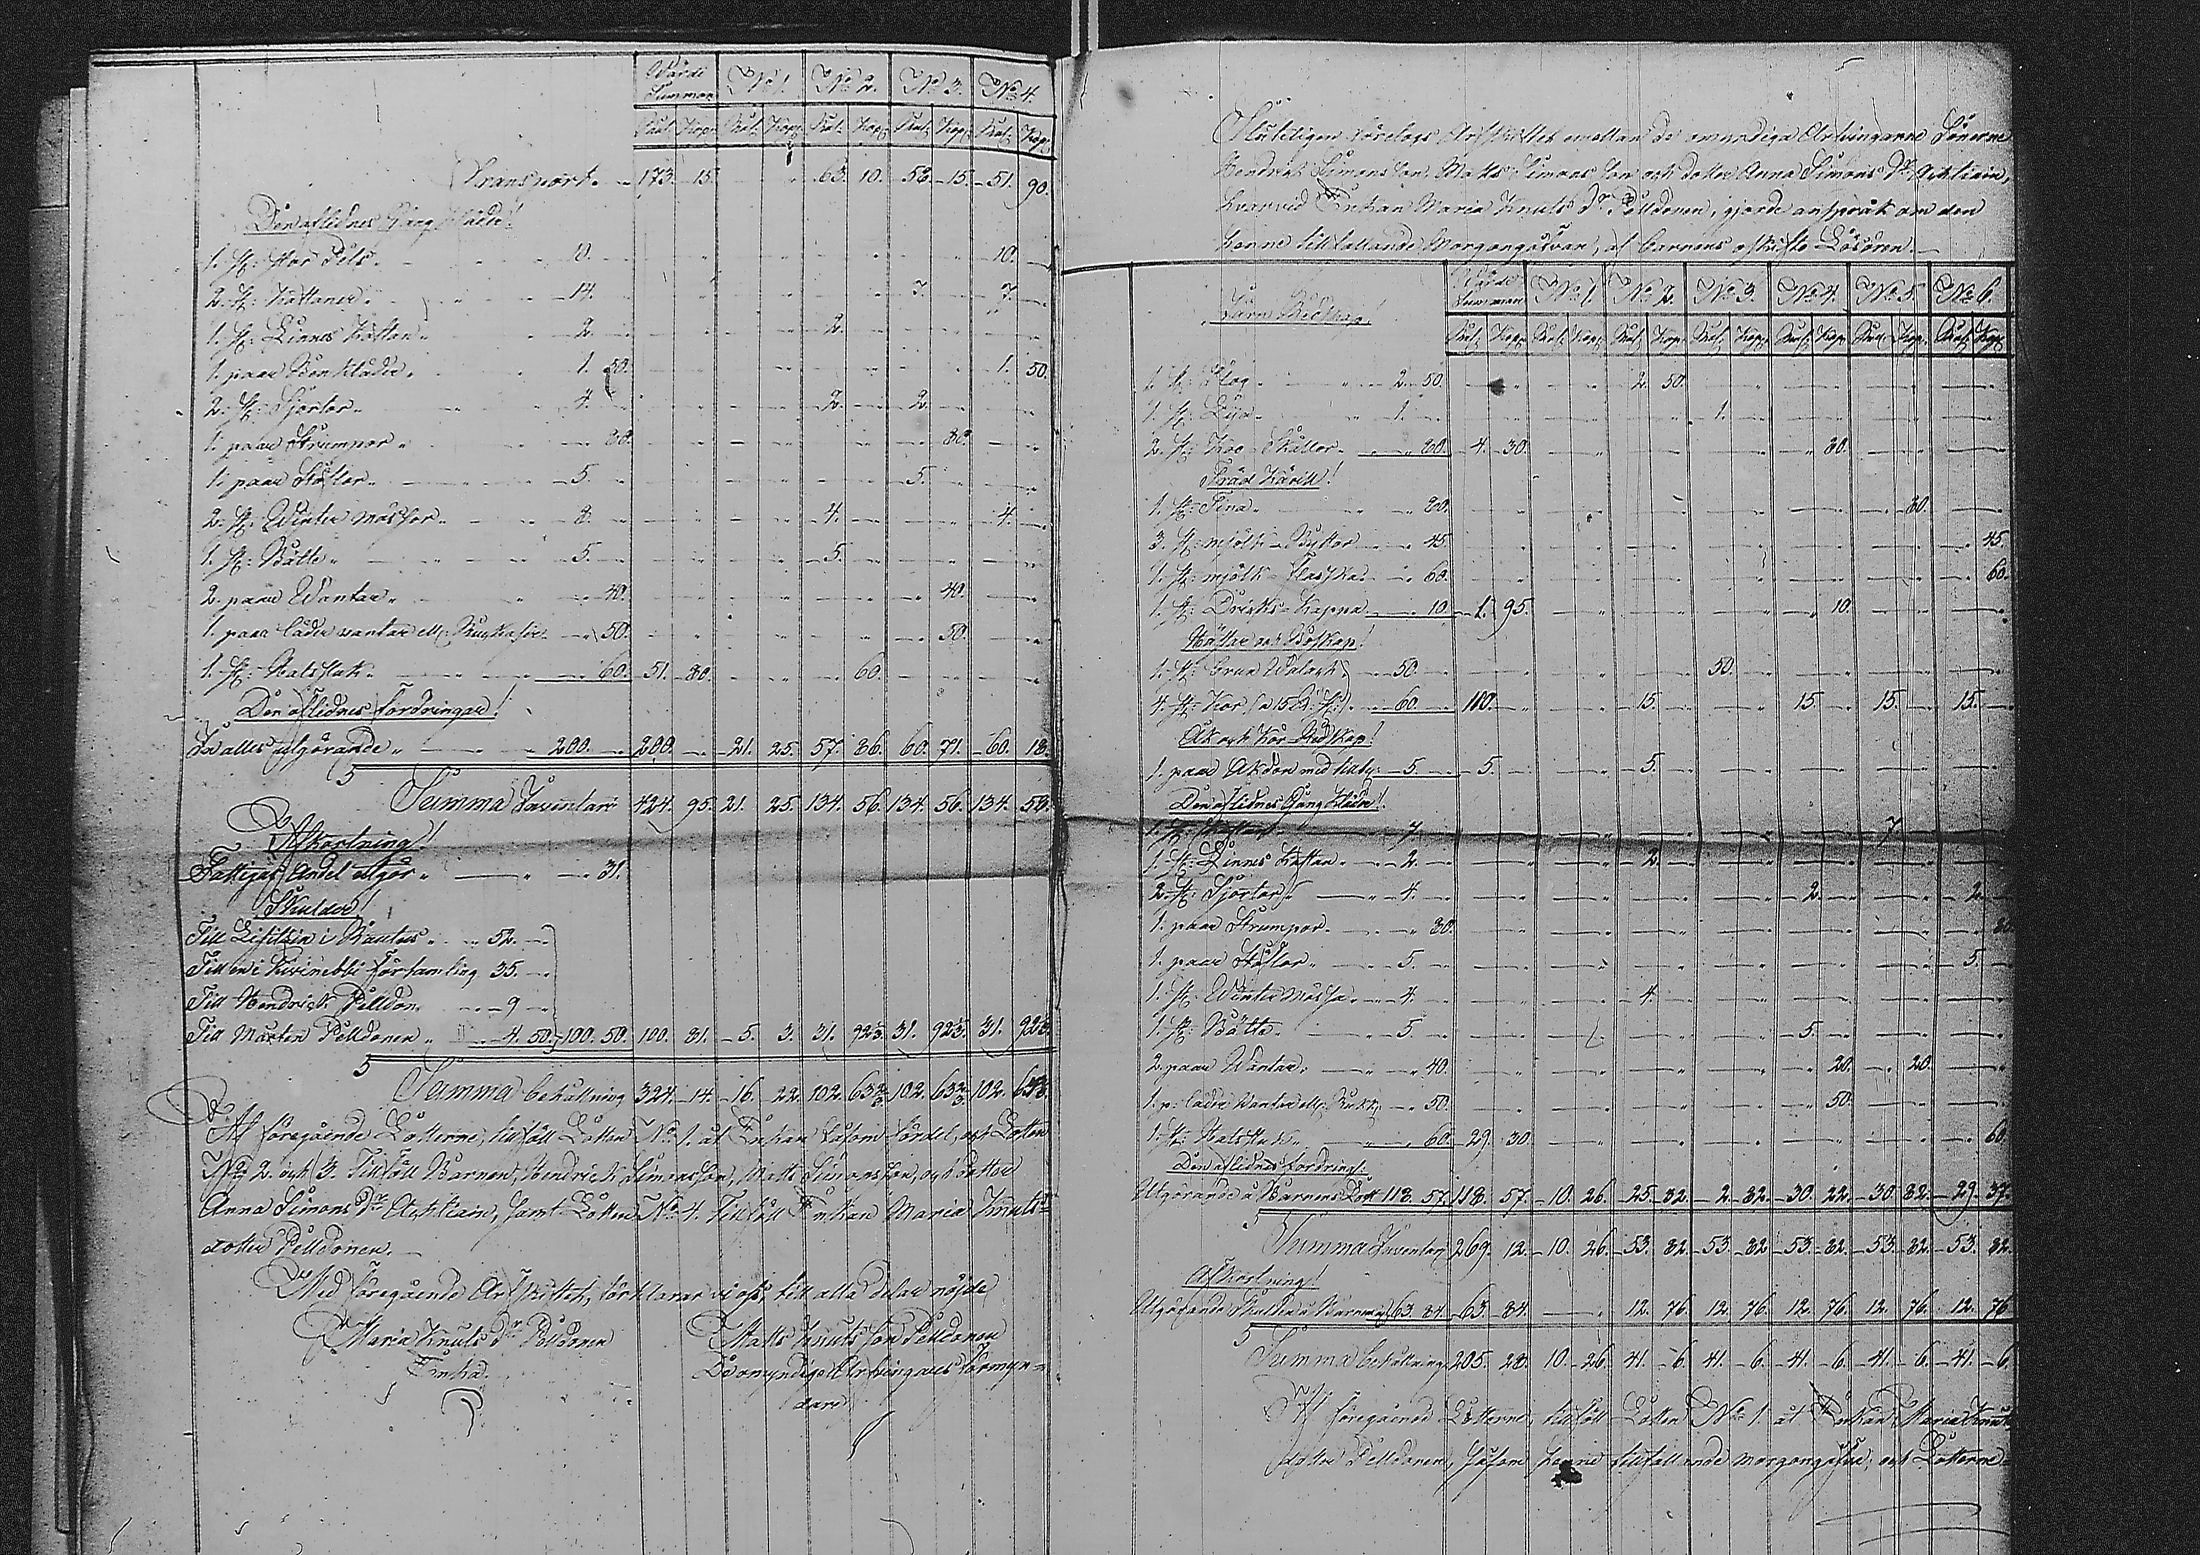 Wärde Summan | No 1. | No 2. | No 3. | No 4.
Rub: Kop: | Rub: Kop: | Rub: Kop: | Rub: Kop: | Rub: Kop:
Transport. 173. 15. 63. 10. 53. 15. 51. 90.
Den aflidnes Gång Kläder!
1. st: Stor Pels. 10. 10.
2. st: Kaftaner. 14. 7. 7.
1. st: Linnes Kaftan. 2. 2.
1. paar Benkläder. 1. 50. 1. 50.
2. st: Sjortor. 4. 2. 2.
1. paar Strumpor. 80. 80.
1. paar Stöflor. 5. 5.
2. st: Winter mössor. 8. 4. 4.
1. st: Bälte. 5. 5.
2. paar Wantar. 40. 40.
1. paar läder wantar ell: 50. 50.
1. st: Halsduk. 60. 51. 80. 60.
Den aflidnes fordringar!
I alles utgörande. 200. 200. 21. 25. 57. 86. 60. 71. 60. 18.
Summa Inventari 424. 95. 21. 25. 134. 56. 134. 56. 134. 58.
Afkortning!
Fattigas Andel utgör. 31.
Skulder!
Till i 52.
Till en i Kivinebbi församling 35.
Till Hendrich Pelldon. 9
Till Mårten Pelldonen. 4. 50. 100. 50. 100. 81. 5. 3. 31. 92 31. 92 31. 92
Summa behållning 324. 14. 16. 22. 102. 63⅔ 102. 63⅔ 102. 63⅔
Af föregående Lotterne, tillföll Lotten No 1. åt Enkan såsom fördel, och Lotten
No 2. och 3. Tillföll Barnen, Hendrich Simonsson, Matts Simonsson, och dotter
Anna Simons Dr samt Lotten No 4. Tillföll Enkan Maria Knuts
dotter Pelldonen.
Med föregående Arfskiftet, förklarar vi oss till alla delar nöjde
Maria Knuts Dr Pelldonen
Enka.
Matts Knuts Son Pelldonen
De omyndige Arfvingars förmyn=
dare
Slutligen företogs Arfskiftet emellan de omyndiga Arfvingarne Sönerne
Hendrich Simons Son, Matts Simons Son och dotter Anna Simons Dr
hvarvid Enkan Maria Knuts Dr Pelldonen, gjorde anspråk om den
henne tillfallande Morgongåfvan, af barnens arfskifte Lösören.
Wärde Summan | No 1. | No 2. | No 3. | No 4. | No 5. | No 6.
Rub: Kop: | Rub: Kop: | Rub: Kop: | Rub: Kop: | Rub: Kop: | Rub: Kop: | Rub: Kop:
Järn Redskap!
1. st: Plog. 2. 50. 2. 50.
1. st: Lija. 1. 1.
2. st: Skällor. 80. 4. 30. 80.
Träd Kärill!
1. st: Tina. 80. 80.
3. st: mjölk Byttor 45. 45.
1. st: mjölk flaska. 60. 60.
1. st: Dricks Kappa 10. 1. 95. 10.
Hästar och Boskap!
1. st: brun Walach 50. 50.
4. st: Kor (a 15 R: st:) 60. 110. 15. 15. 15. 15.
Åk och Kör Redskap!
1. paar Åkdon med tillby: 5. 5. 5.
Den aflidnes Gång Kläder!
1. st: Kaftan. 7. 7
1. st: Linnes Kaftan. 2. 2.
2. st: Sjortor. 4. 2. 2.
1. paar Strumpor. 80. 80.
1. paar Stöflor. 5. 5.
1. st: Winter mössa. 4. 4.
1. st: Bälte. 5. 5.
2. paar Wantar. 40. 20. 20.
1. p: läder Wantar ell: 50. 50.
1. st: Halsduk. 60. 29. 30. 60.
Den aflidnes fordring!
Utgörande å Barnens Lott 118. 57. 118. 57. 10. 26. 25. 32. 2. 82. 30. 22. 30. 82. 29. 37.
Summa Inventari 269. 12. 10. 26. 53. 82. 53. 82. 53. 82. 53. 82. 53. 82.
Afkortning!
Utgörande Skulden å Barnens 63. 84. 63. 84. 12. 76. 12. 76. 12. 76. 12. 76. 12. 76.
Summa behållning 205. 28. 10. 26. 41. 6. 41. 6. 41. 6. 41. 6. 41. 6.
Af föregående Lotterne, tillföll Lotten No 1 åt Enkan Maria Knuts
dotter Pelldonen, såsom henne tillfallande morgongåfva, och Lotterne